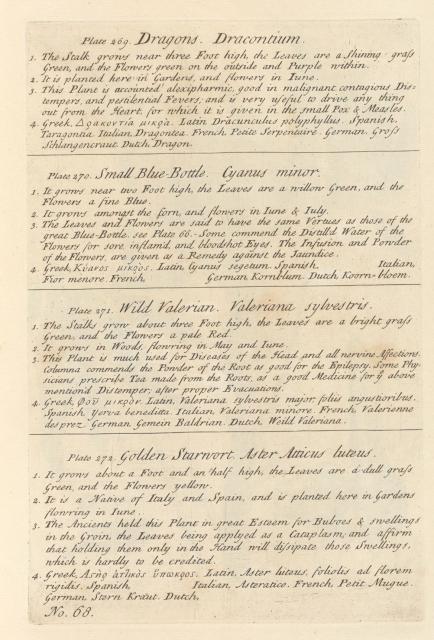 Plate 269. Dragons. Dracontium.
1. The Stalk grows near three Foot high, the Leaves are a Shining grass
Green, and the Flowers green on the outside and Purple within.
2. It is planted here in Gardens, and flowers in Iune.
3. This Plant is accounted alexipharmic, good in malignant contagious Dis-
tempers, and pestilential Fevers; and is very useful to drive any thing
out from the Heart, for which it is given in the small Pox & Measles.
4. Greek, Δρακοντία μικρὰ. Latin Dracunculus polyphyllus. Spanish,
Taragontia. Italian, Dragontea. French, Petite Serpentaire. German, Gross
Schlangencraut. Dutch, Dragon.
Plate 270. Small Blue-Bottle. Cyanus minor.
1. It grows near two Foot high, the Leaves are a willow Green, and the
Flowers a fine Blue.
2. It grows amongst the Corn, and flowers in Iune & Iuly.
3. The Leaves and Flowers are said to have the same Vertues as those of the
great Blue-Bottle, see Plate 66. Some commend the Distill'd Water of the
Flowers for sore, inflam'd, and bloodshot Eyes. The Infusion and Powder
of the Flowers, are given as a Remedy against the Jaundice.
4. Greek, Κύανος μικρὸς. Latin, Cyanus segetum. Spanish, Italian,
Fior menore. French, German, Kornblum. Dutch, Koorn-bloem.
Plate 271. Wild Valerian. Valeriana sylvestris.
1. The Stalks grow about three Foot high, the Leaves are a bright grass
Green, and the Flowers a pale Red.
2. It grows in Woods, flowring in May and Iune.
3. This Plant is much used for Diseases of the Head and all nervine Affections.
Columna commends the Powder of the Root as good for the Epilepsy. Some Phy-
sicians prescribe Tea made from the Roots, as a good Medicine for ye above
mention'd Distemper, after proper Evacuations.
4. Greek, Φοῦ μικρὸν. Latin, Valeriana sylvestris major foliis angustioribus.
Spanish, Yerva beneditta. Italian, Valeriana minore. French, Valerienne
des prez. German, Gemein Baldrian. Dutch, Weild Valeriana.
Plate 272. Golden Starwort. Aster Atticus luteus.
1. It grows about a Foot and an half high, the Leaves are a dull grass
Green, and the Flowers yellow.
2. It is a Native of Italy and Spain, and is planted here in Gardens
flowring in Iune.
3. The Ancients held this Plant in great Esteem for Buboes & swellings
in the Groin, the Leaves being applyed as a Cataplasm; and affirm
that holding them only in the Hand will dissipate those Swellings,
which is hardly to be credited.
4. Greek, Ἀστὴρ ἀτικὸς. Latin, Aster luteus, foliolis ad florem
rigidis. Spanish, Italian, Asteratico. French, Petit Mugue.
German, Stern Kraut. Dutch,
No. 68.